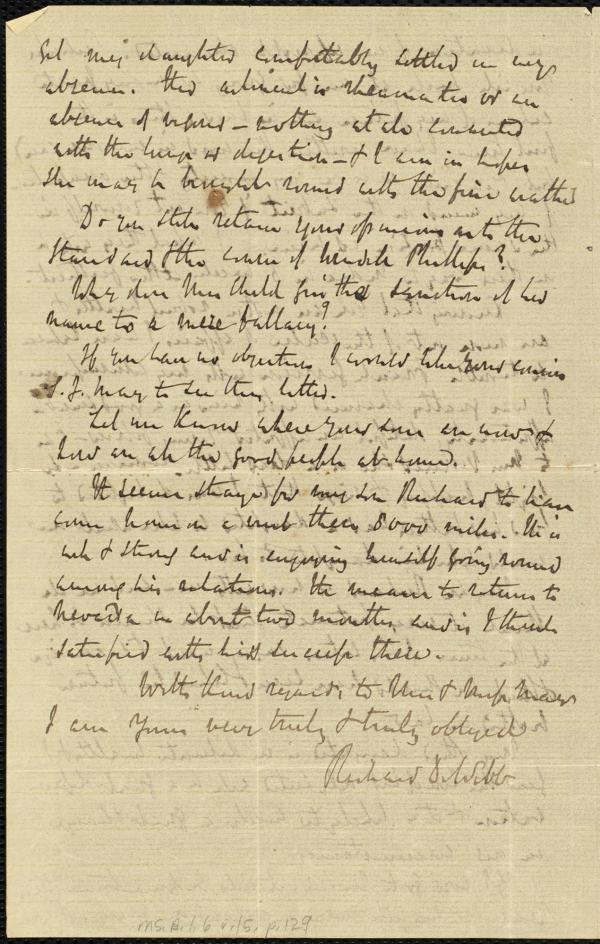 Get my daughter comfortably settled in my
absence. Her ailment is rheumatic or an
absence of vigour – nothing at all connected
with the lungs or digestion – & I am in hopes
she may be brought round with the fine weather
Do you still retain your opinions as to the
Standard & the course of Wendell Phillips?
Why does Mrs Child give the sanction of her
name to a mere fallacy?
If you have no objection I would like your cousin
S. J. May to see this letter.
Let me know where your sons are now &
how are all the good people at home.
It seems strange for my son Richard to have
come home on a visit these 8000 miles. He is
well & strong and is enjoying himself going round
among his relations. He means to return to
Nevada in about two months and is I think
satisfied with his success there.
With kind regards to Mrs & Miss May
I am Yours very truly & truly obliged
Richard D. Webb
MS. B.1.6 v.15, p.129